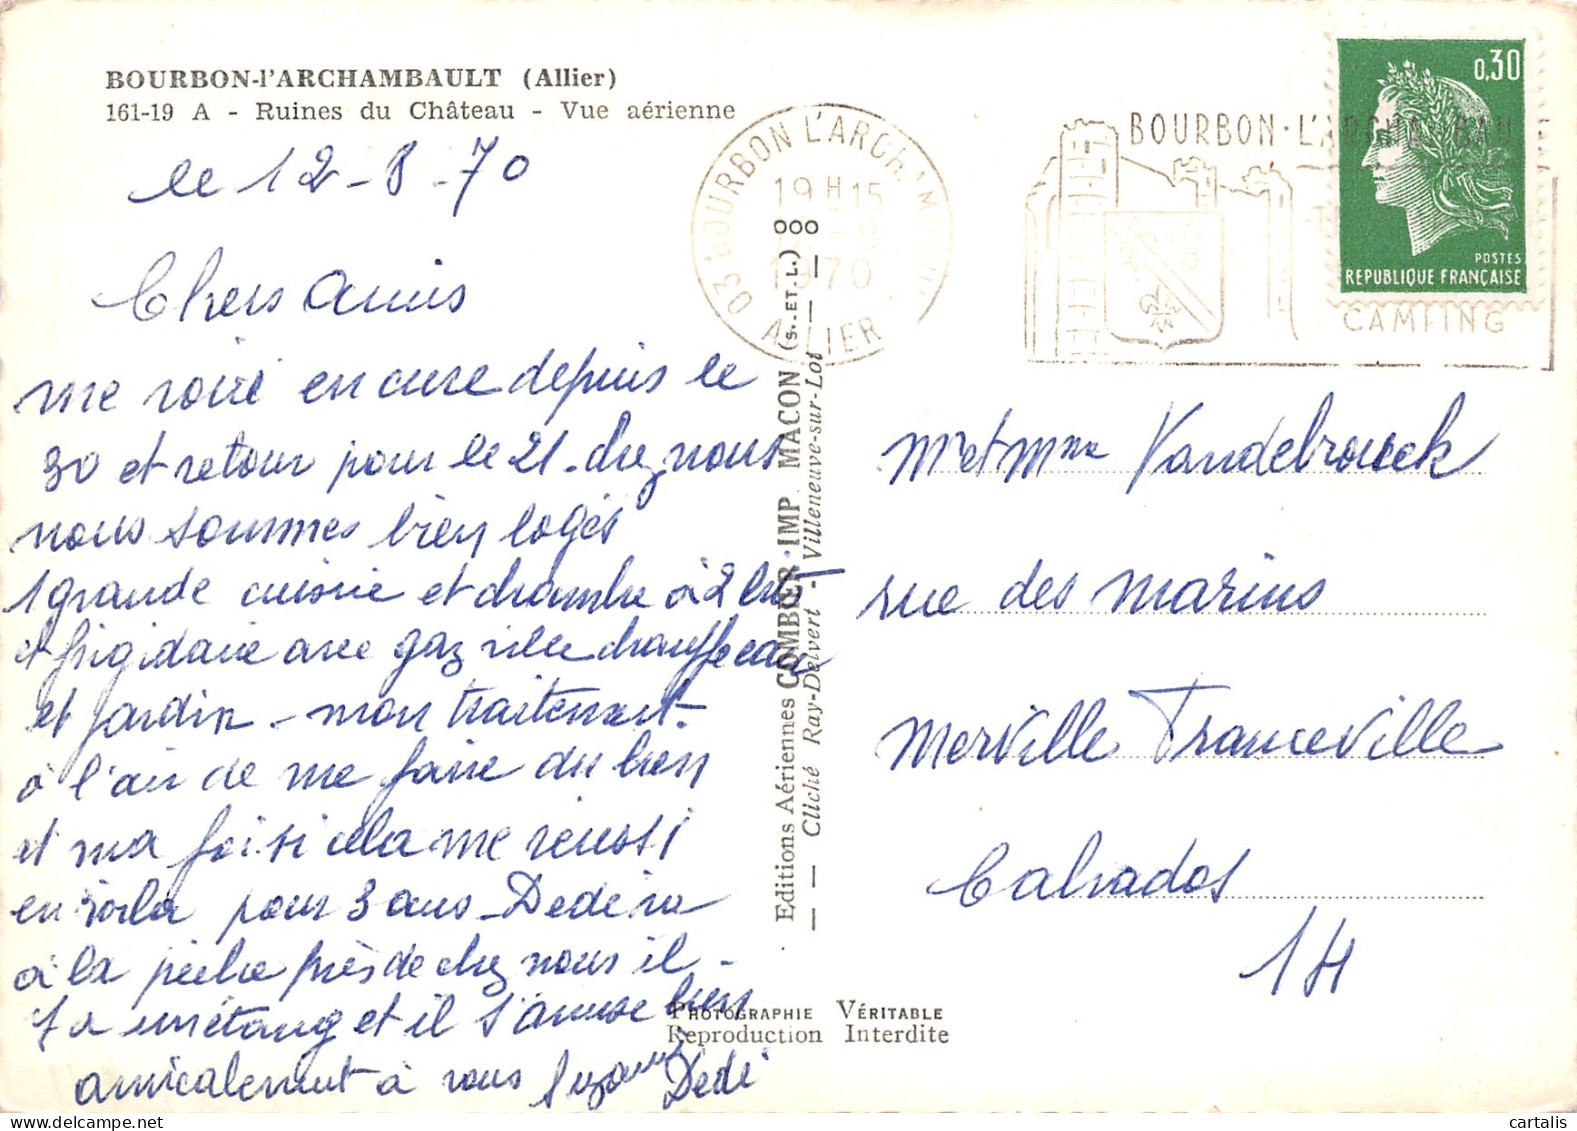 BOURBON-l'ARCHAMBAULT (Allier)
161-19 A - Ruines du Château - Vue aérienne
le 12-8-70
Chers Amis
me voici en cure depuis le
30 et retour pour le 21. chez nous
nous sommes bien logés
1 grande cuisine et chambre à 2 lits
et frigidaire avec gaz ville chauffe eau
et jardin - mon traitement
a l'air de me faire du bien
et ma foi si cela me réussi
en voila pour 3 ans - Dédé va
à la pêche près de chez nous il
y a un étang et il s'amuse bien
amicalement à vous Suzanne
Dédé
03 BOURBON L'ARCHAMBAULT
19H15
1970
ALLIER
BOURBON-L'ARCHAMBAULT
CAMPING
0,30
POSTES
REPUBLIQUE FRANÇAISE
Editions Aériennes COMBIER IMP. MACON (S. ET L.) ooo
Cliché Ray-Delvert - Villeneuve-sur-Lot
M et Mme Vandebrouck
rue des Marins
Merville Franceville
Calvados
14
PHOTOGRAPHIE VÉRITABLE
Reproduction Interdite
cartalis